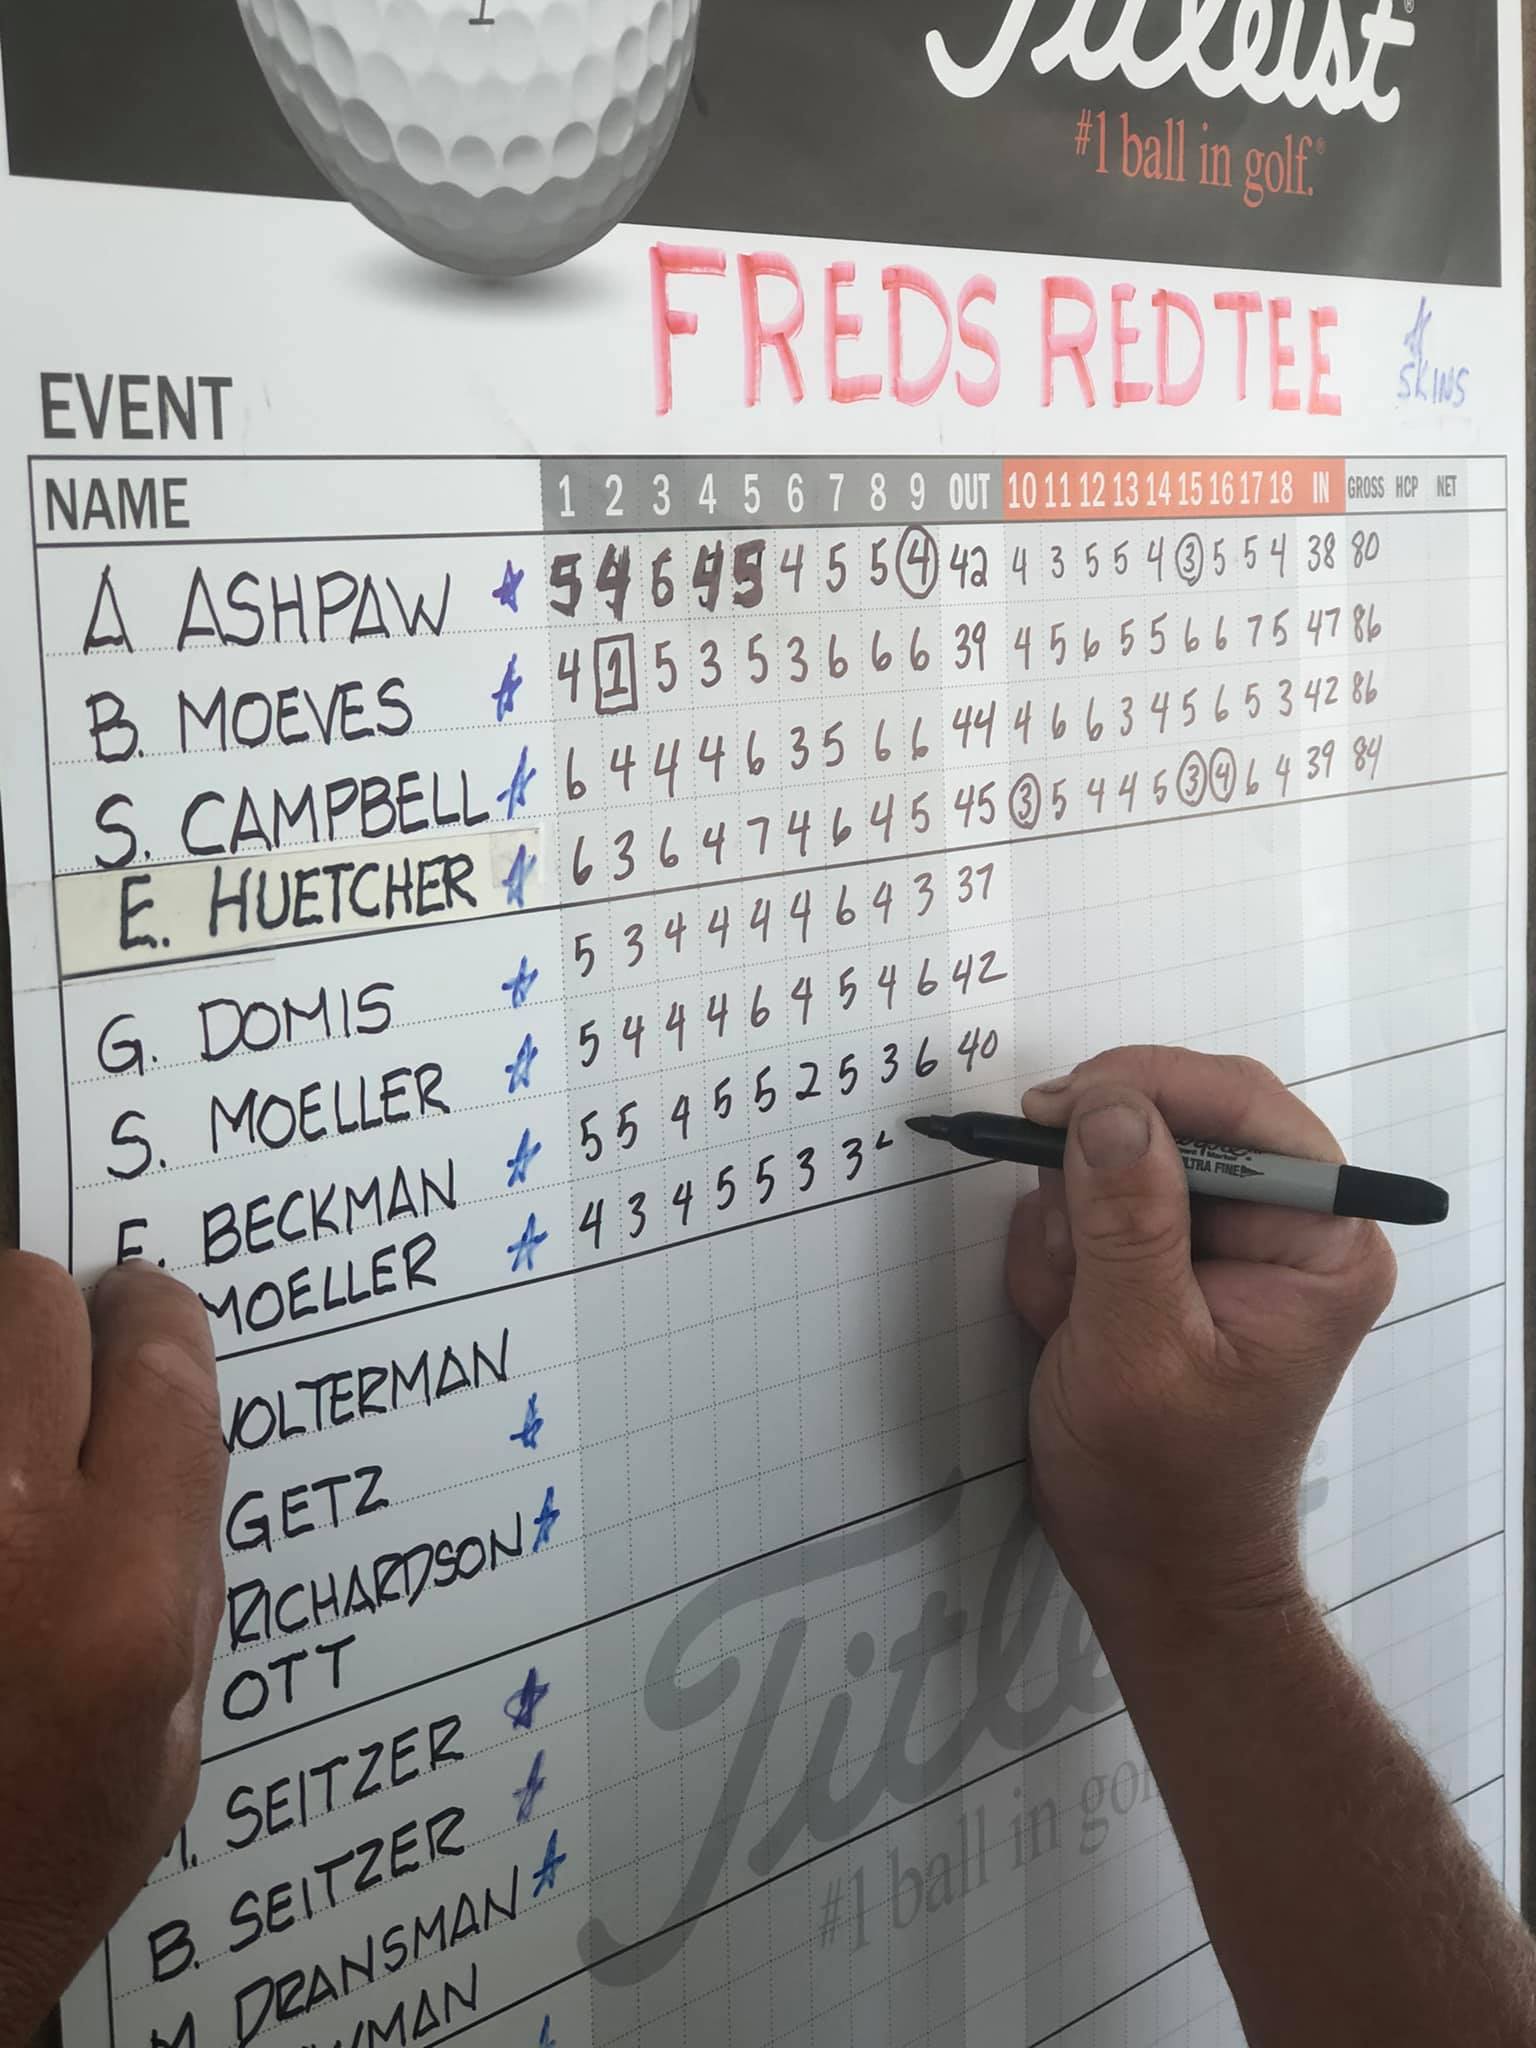 Titleist®
#1 ball in golf.®
FREDS RED TEE
SKINS
EVENT
NAME 1 2 3 4 5 6 7 8 9 OUT 10 11 12 13 14 15 16 17 18 IN GROSS HCP NET
A ASHPAW 5 4 6 4 5 4 5 5 4 42 4 3 5 5 4 3 5 5 4 38 80
B. MOEVES 4 1 5 3 5 3 6 6 6 39 4 5 6 5 5 6 6 7 5 47 86
S. CAMPBELL 6 4 4 4 6 3 5 6 6 44 4 6 6 3 4 5 6 5 3 42 86
E. HUETCHER 6 3 6 4 7 4 6 4 5 45 3 5 4 4 5 3 4 6 4 39 84
G. DOMIS 5 3 4 4 4 4 6 4 3 37
S. MOELLER 5 4 4 4 6 4 5 4 6 42
BECKMAN 5 5 4 5 5 2 5 3 6 40
MOELLER 4 3 4 5 5 3 3
ULTRA FINE
VOLTERMAN
GETZ
RICHARDSON
OTT
SEITZER
B. SEITZER
M. DRANSMAN
Titleist
#1 ball in golf